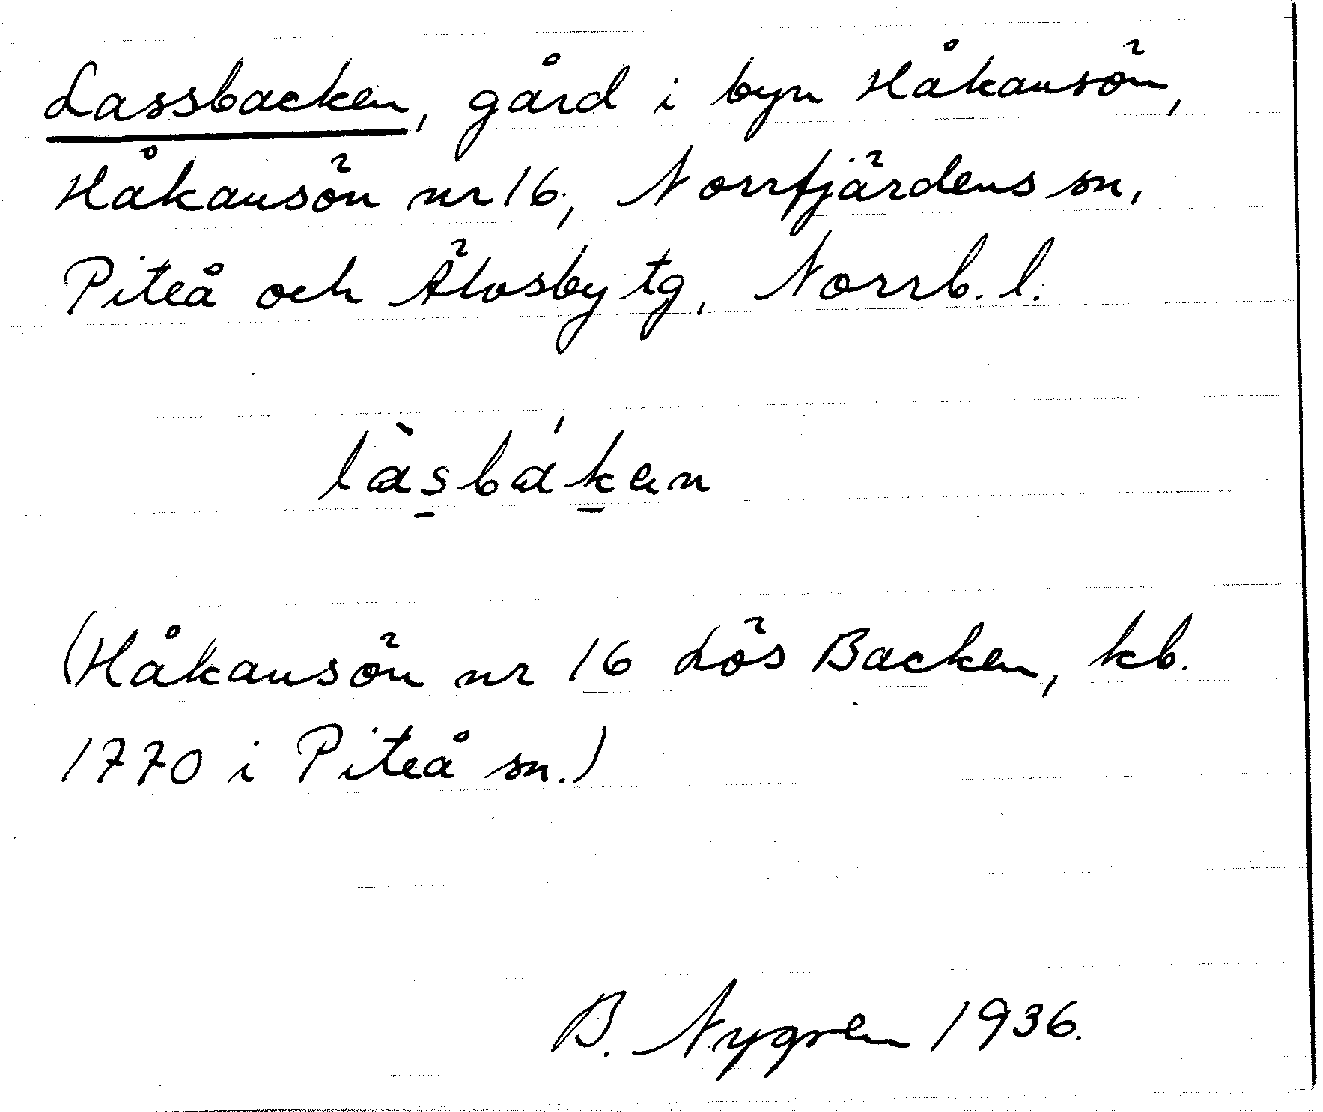 Lassbacken, gård i byn Håkansön,
Håkansön nr 16, Norrfjärdens sn,
Piteå och Älvsby tg, Norrb. l.
làs̱báḵen
(Håkansön nr 16 Lös Backen, kb.
1770 i Piteå sn.)
B. Nygren 1936.